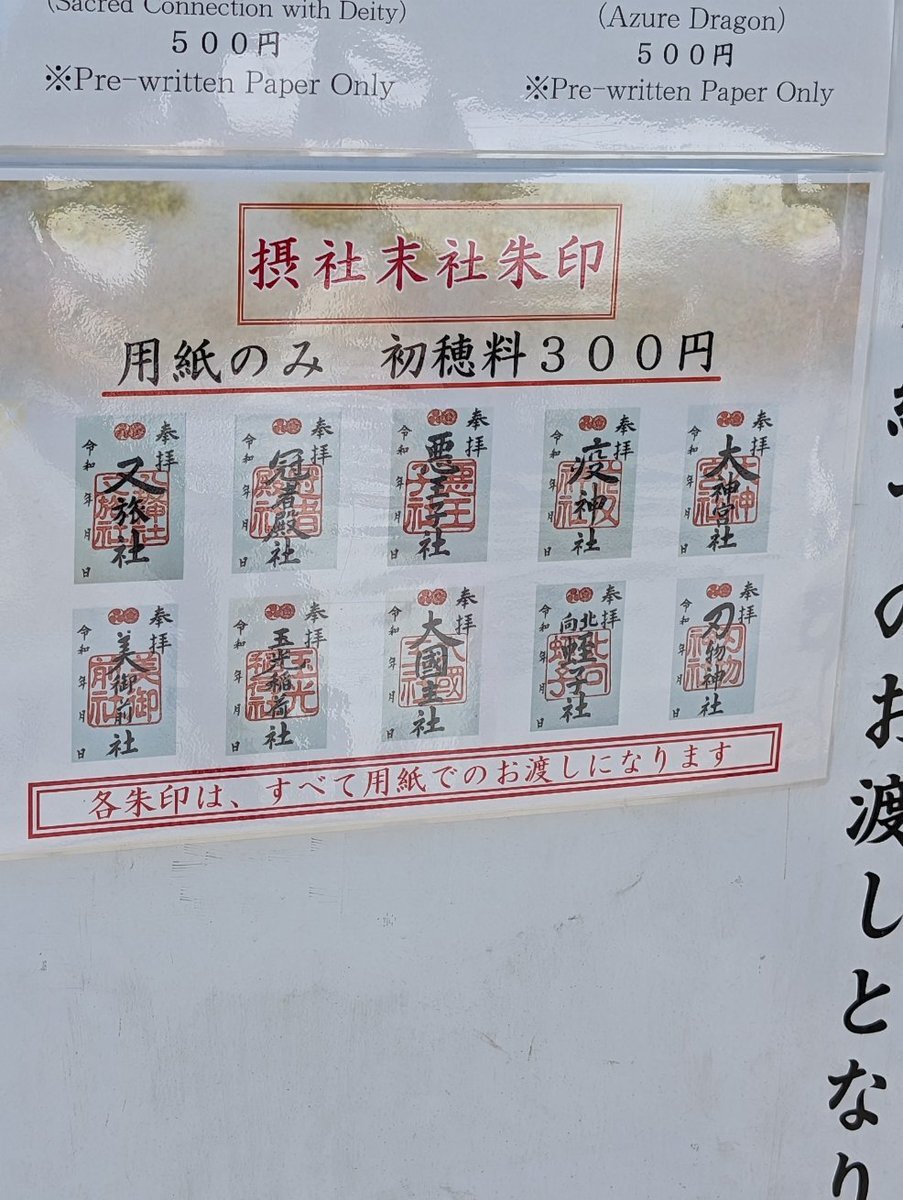 (Sacred Connection with Deity)
５００円
※Pre-written Paper Only
(Azure Dragon)
５００円
※Pre-written Paper Only
摂社末社朱印
用紙のみ　初穂料３００円
奉拝
又旅社
令和　年　月　日
奉拝
冠者殿社
令和　年　月　日
奉拝
悪王子社
令和　年　月　日
奉拝
疫神社
令和　年　月　日
奉拝
大神宮社
令和　年　月　日
奉拝
美御前社
令和　年　月　日
奉拝
玉光稲荷社
令和　年　月　日
奉拝
大國主社
令和　年　月　日
奉拝
北向蛭子社
令和　年　月　日
奉拝
刃物神社
令和　年　月　日
各朱印は、すべて用紙でのお渡しになります
のお渡しとなり